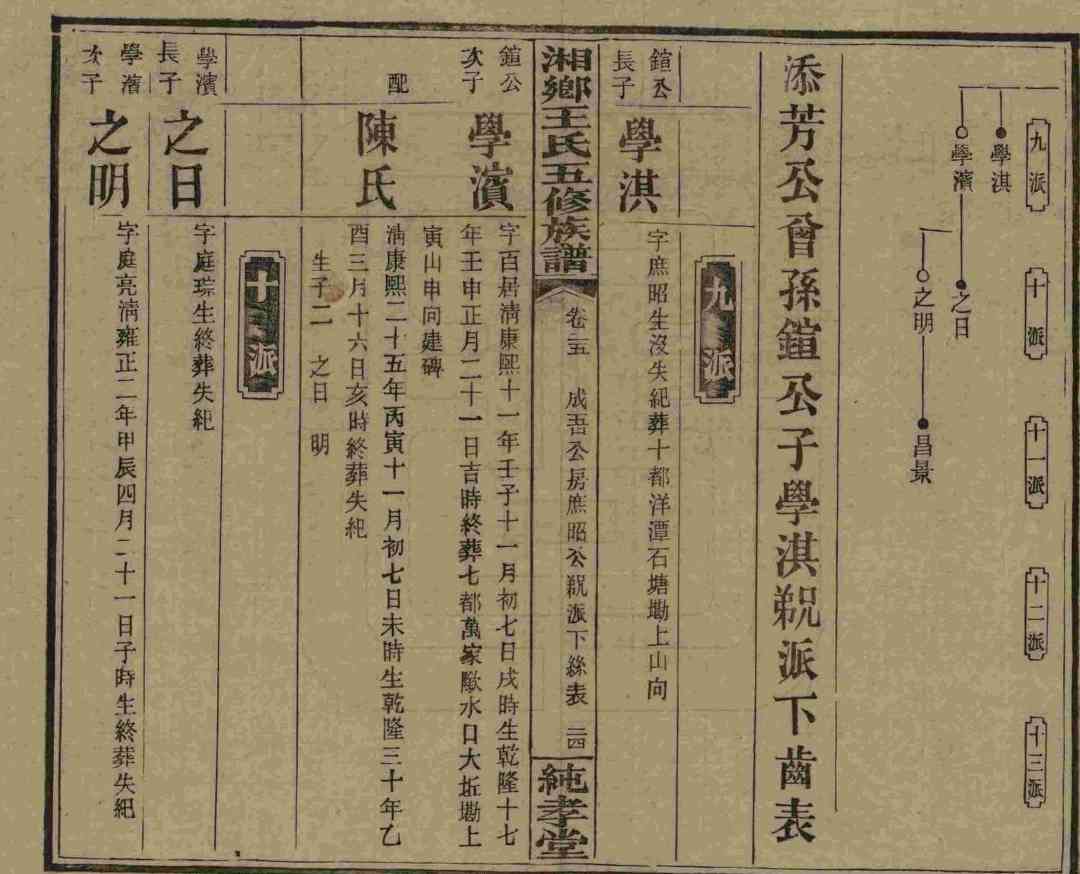 九派
十派
十一派
十二派
十三派
學淇
學濱
之日
之明
昌景
添芳公曾孫鍹公子學淇䘏派下齒表
九派
鍹公長子
學淇
字庶昭生沒失紀葬十都洋潭石塘坳上山向
湘鄉王氏五修族譜
卷二五 成吾公房庶昭公䘏派下絲表 二四
純孝堂
鍹公次子
學濱
字百居清康熙十一年壬子十一月初七日戌時生乾隆十七
年壬申正月二十一日吉時終葬七都萬家歘水口大坵坳上
寅山申向建碑
配
陳氏
清康熙二十五年丙寅十一月初七日未時生乾隆三十年乙
酉三月十六日亥時終葬失紀
生子二 之日 明
十派
學濱長子
之日
字庭琮生終葬失紀
學濱次子
之明
字庭亮清雍正二年甲辰四月二十一日子時生終葬失紀